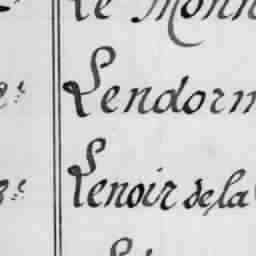 Le Monn
Lendorm
Lenoir de la